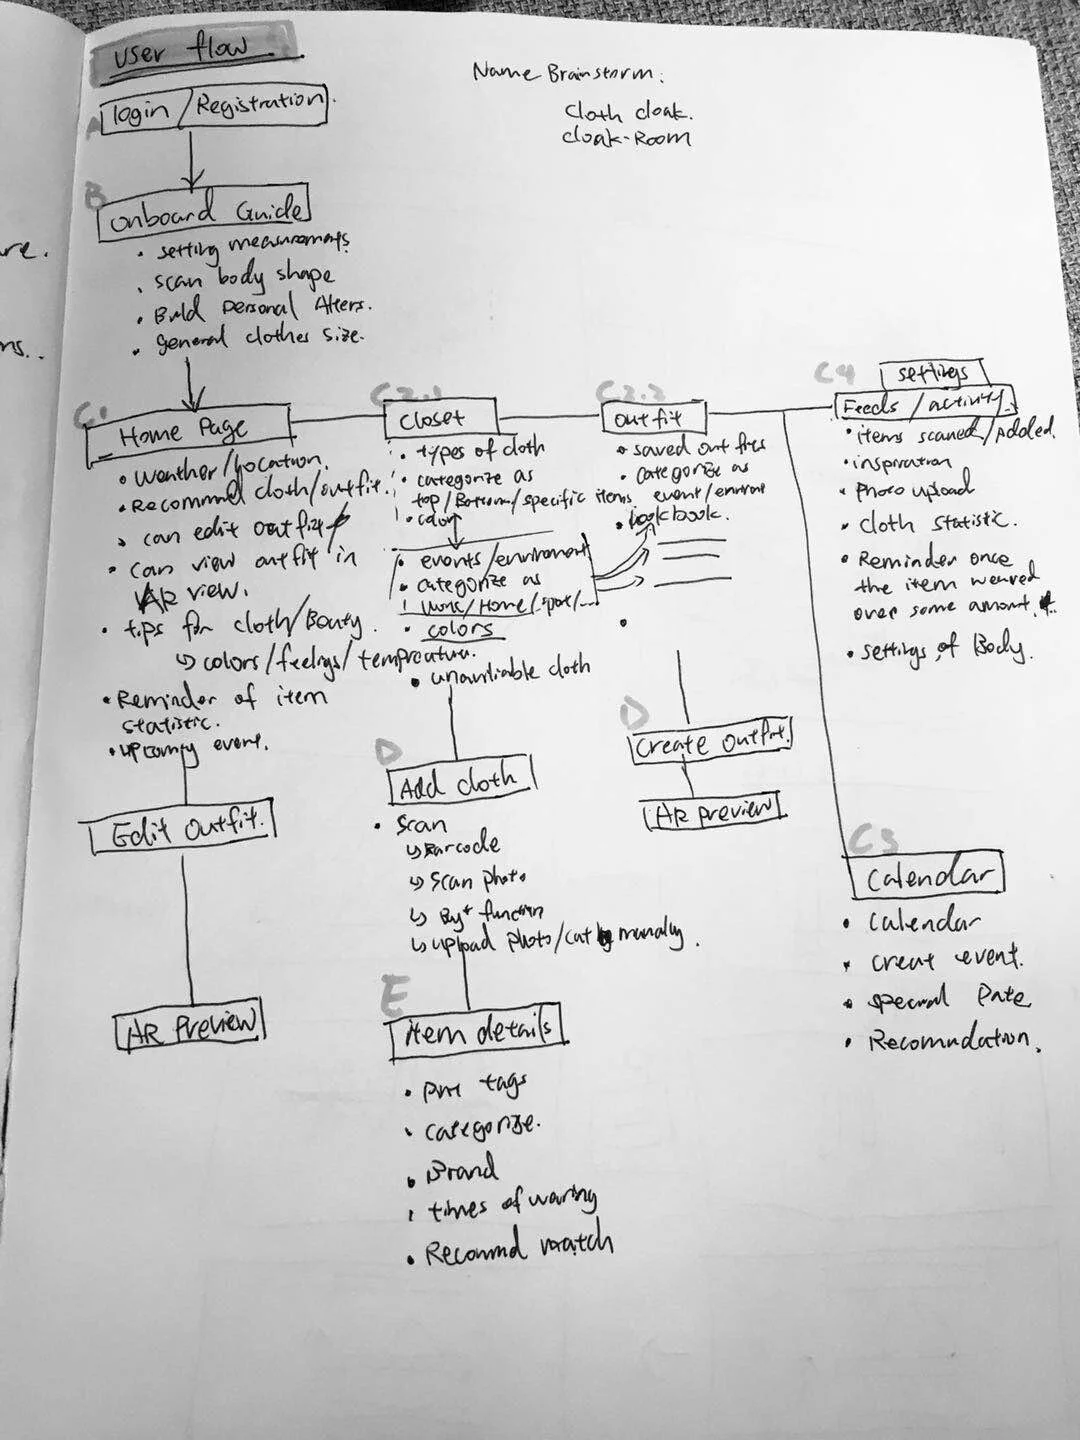 user flow
Name Brainstorm:
cloth cloak.
cloak-Room
A
login / Registration.
B
onboard Guide
• setting measurements
• scan body shape
• Build personal
• general clothes size.
C1
Home Page
• weather/location.
• Recommed cloth/outfit.
• can edit outfit
• can view outfit in
AR view.
• tips for cloth/Beuty
↳ colors/feelings/tempreature.
• Reminder of item
statistic.
• upcomiy event.
Edit outfit.
AR preview
C2.1
Closet
• types of cloth
• categorize as
top/Bottom/specific items
• color
• events/enviroment
• categorize as
work/Home/sport/...
• colors
• unavaliable cloth
D
Add cloth
• Scan
↳ Barcode
↳ Scan photo
↳ function
↳ upload photo/cut manualy.
E
item details
• tags
• categorize.
• Brand
• times of waring
• Recommd match
C2.2
outfit
• saved outfits
• categorize as
event/enviroment
• lookbook.
D
create outfit.
AR preview
C4
settings
Feeds / activity.
• items scaned/Added.
• inspiration
• photo upload
• cloth statistic.
• Reminder once
the item weared
over some amount.
• settings of Body.
C3
calendar
• calendar
• creat event.
• special Date
• Recomndation.